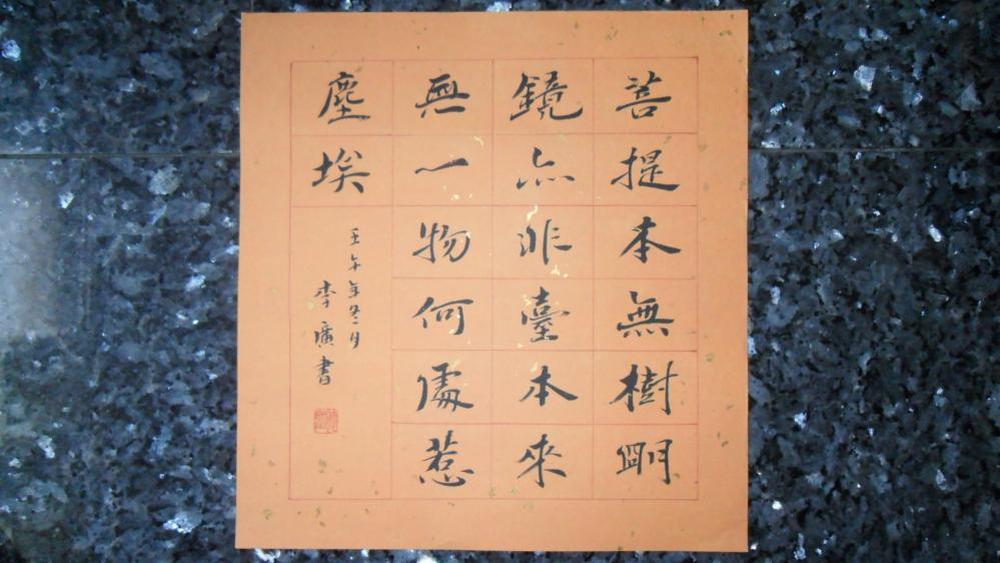 菩提本無樹朙
鏡亦非臺本來
無一物何處惹
塵埃
壬午年冬月
李廣書